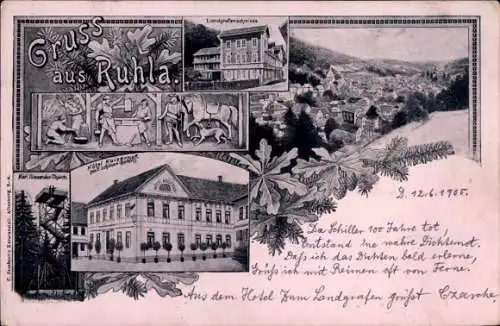 Gruss
aus Ruhla.
Landgrafenschmiede
Hôtel Kurhaus
Karl Alexander-Thurm
D. 12.6.1905.
Da Schiller 100 Jahre tot,
Entstand 'ne wahre Dichternot.
Daß ich das Dichten bald erlerne,
Grüß ich mit Reimen oft von Ferne.
Aus dem Hotel Zum Landgrafen grüßt